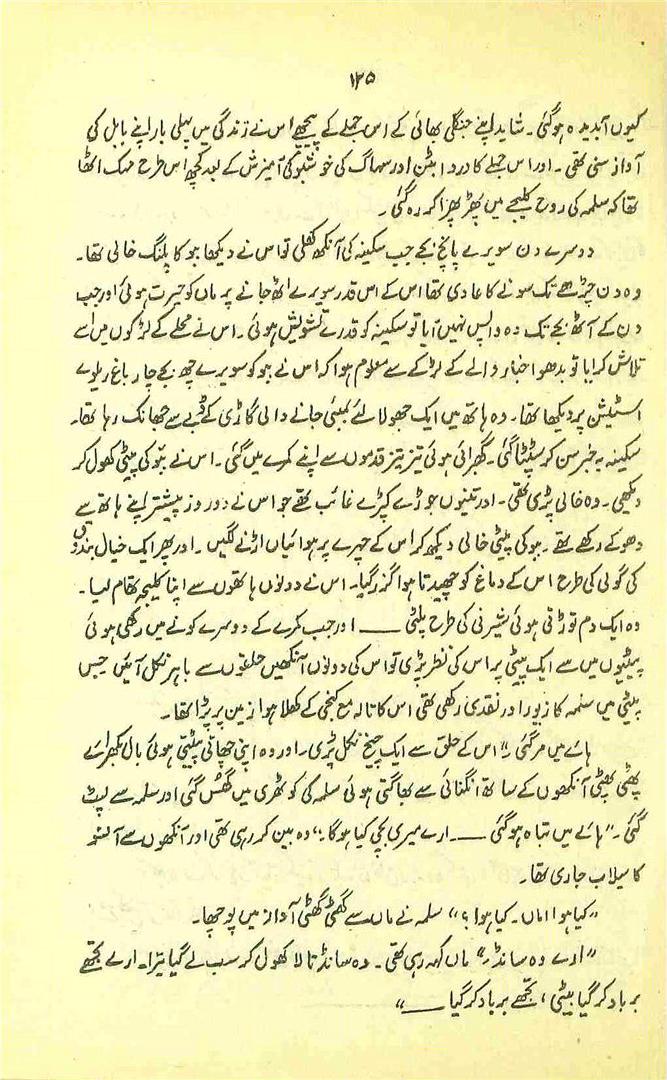 ۱۲۵
کیوں آبدیدہ ہوگئی۔ شاید اپنے جنگلی بھائی کے اس جملے کے پیچھے اس نے زندگی میں پہلی بار اپنے بابل کی
آواز سنی تھی۔ اور اس جملے کا درد ابٹن اور سہاگ کی خوشبو کی آمیزش کے بعد کچھ اس طرح مہک اٹھا
تھا کہ سلمہ کی روح کلیجے میں پھڑپھڑا کر رہ گئی۔
دوسرے دن سویرے پانچ بجے جب سکینہ کی آنکھ کھلی تو اس نے دیکھا ببو کا پلنگ خالی تھا۔
وہ دن چڑھے تک سونے کا عادی تھا اس کے اس قدر سویرے اٹھ جانے پر ماں کو حیرت ہوئی اور جب
دن کے آٹھ بجے تک وہ واپس نہیں آیا تو سکینہ کو قدرے تشویش ہوئی۔ اس نے محلے کے لڑکوں میں اسے
تلاش کرایا تو بدھو اخبار والے کے لڑکے سے معلوم ہوا کہ اس نے ببو کو سویرے چھ بجے چار باغ ریلوے
اسٹیشن پر دیکھا تھا۔ وہ ہاتھ میں ایک جھولا لئے بمبئی جانے والی گاڑی کے ڈبے سے جھانک رہا تھا۔
سکینہ یہ خبر سن کر سٹپٹا گئی۔ گھبرائی ہوئی تیز تیز قدموں سے اپنے کمرے میں گئی۔ اس نے ببّو کی پیٹی کھول کر
دیکھی۔ وہ خالی پڑی تھی۔ اور تینوں جوڑے کپڑے غائب تھے جو اس نے دو روز پیشتر اپنے ہاتھ سے
دھو کے رکھے تھے۔ ببو کی پیٹی خالی دیکھ کر اس کے چہرے پر ہوائیاں اڑنے لگیں۔ اور پھر ایک خیال بندوق
کی گولی کی طرح اس کے دماغ کو چھیدتا ہوا گزر گیا۔ اس نے دونوں ہاتھوں سے اپنا کلیجہ تھام لیا۔
وہ ایک دم توڑتی ہوئی شیرنی کی طرح پلٹی ــــــ اور جب کمرے کے دوسرے کونے میں رکھی ہوئی
پیٹیوں میں سے ایک پیٹی پر اس کی نظر پڑی تو اس کی دونوں آنکھیں حلقوں سے باہر نکل آئیں جس
پیٹی میں سلمہ کا زیور اور نقدی رکھی تھی اس کا تالہ مع کنجی کے کھلا ہوا زمین پر پڑا تھا۔
ہائے میں مر گئی۔" اس کے حلق سے ایک چیخ نکل پڑی۔ اور وہ اپنی چھاتی پیٹتی ہوئی بال بکھرائے
پھٹی پھٹی آنکھوں کے ساتھ انگنائی سے بھاگتی ہوئی سلمہ کی کوٹھری میں گھس گئی اور سلمہ سے لپٹ
گئی۔ "ہائے میں تباہ ہوگئی ــــــ ارے میری بچی کیا ہوگا۔" وہ بین کر رہی تھی اور آنکھوں سے آنسو
کا سیلاب جاری تھا۔
"کیا ہوا اماں۔ کیا ہوا؟" سلمہ نے ماں سے گھٹی گھٹی آواز میں پوچھا۔
"ارے وہ سانڈ۔" ماں کہہ رہی تھی۔ وہ سانڈ تالا کھول کر سب لے گیا تیرا۔ ارے تجھے
برباد کر گیا بیٹی، تجھے برباد کر گیا ــــــ"